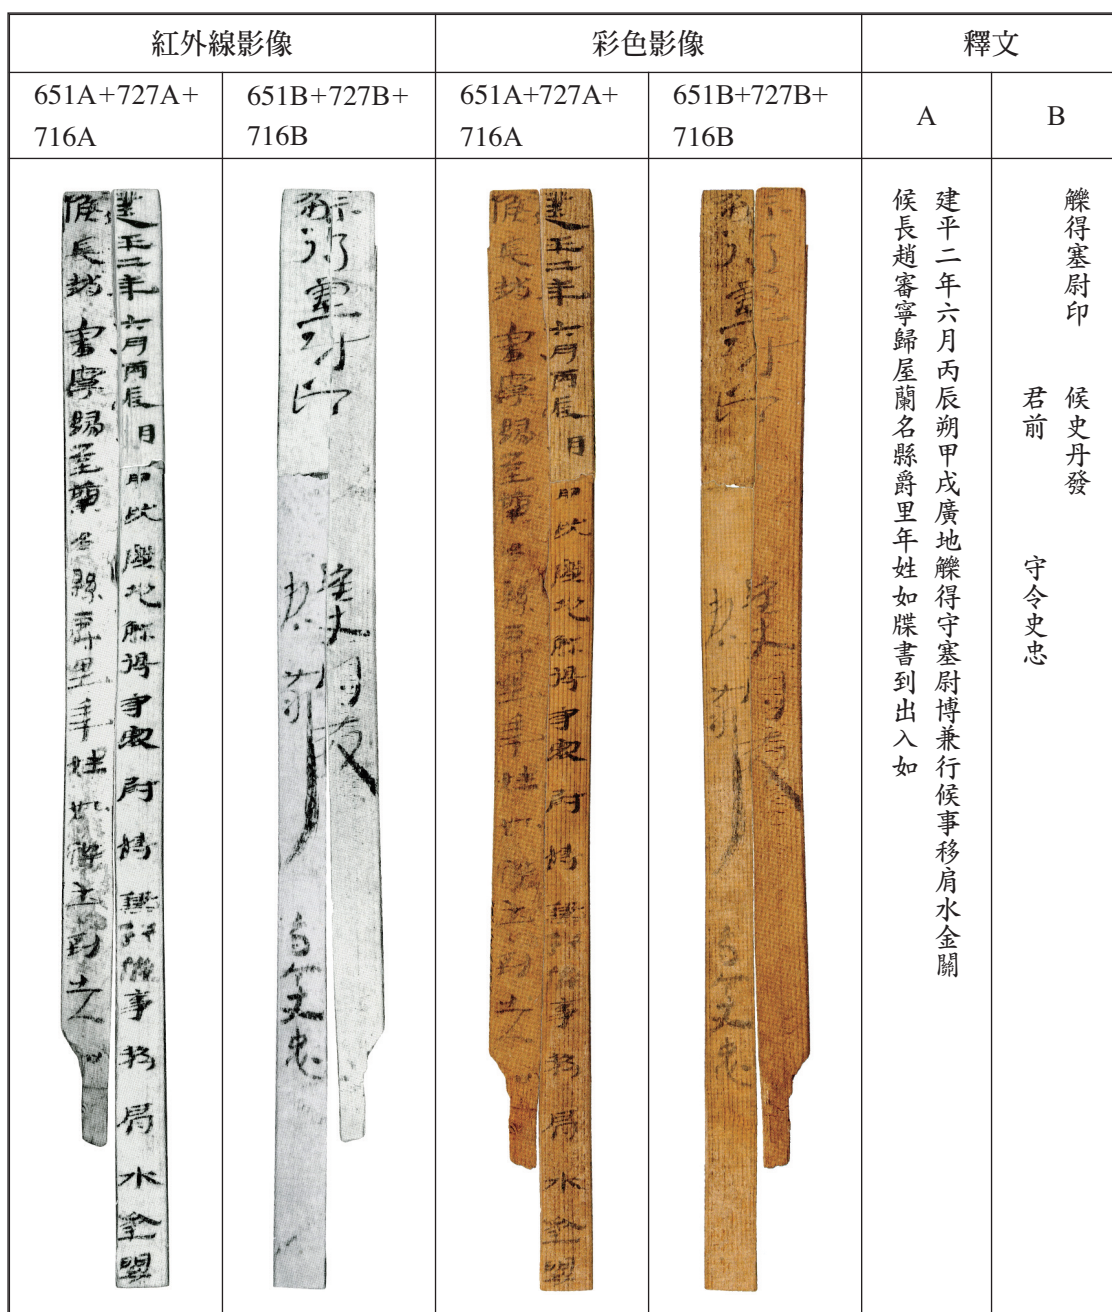 紅外線影像
彩色影像
釋文
651A+727A+
716A
651B+727B+
716B
651A+727A+
716A
651B+727B+
716B
A
B
建平二年六月丙辰朔甲戌廣地觻得守塞尉博兼行候事移肩水金關
候長趙審寧歸屋蘭名縣爵里年姓如牒書到出入如
觻得塞尉印 候史丹發
君前 守令史忠